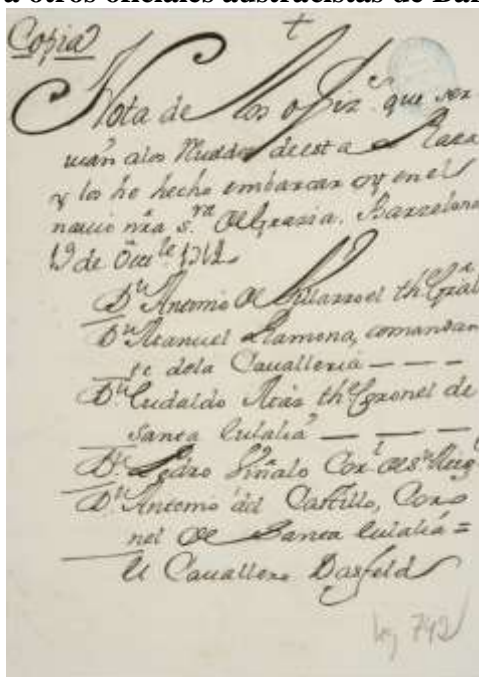 a otros oficiales austracistas de Bar
Copia
Nota de los ofiz.s que ser
uian a los de esta Plaza
y los he hecho embarcar oy en el
nauio nra s.ra de Grazia. Barzelona
19 de 1714
D.n Antonio de Villarroel th Gral
D.n Manuel Llamona, comandan
te de la Caualleria ———
D.n Eudaldo Mas th Coronel de
Santa Eulalia ———
D.n Pedro Viñals Cor.l de
D.n Antonio del Castillo, Coro
nel de Santa Eulalia =
El Cauallero Dasfeld
leg 742